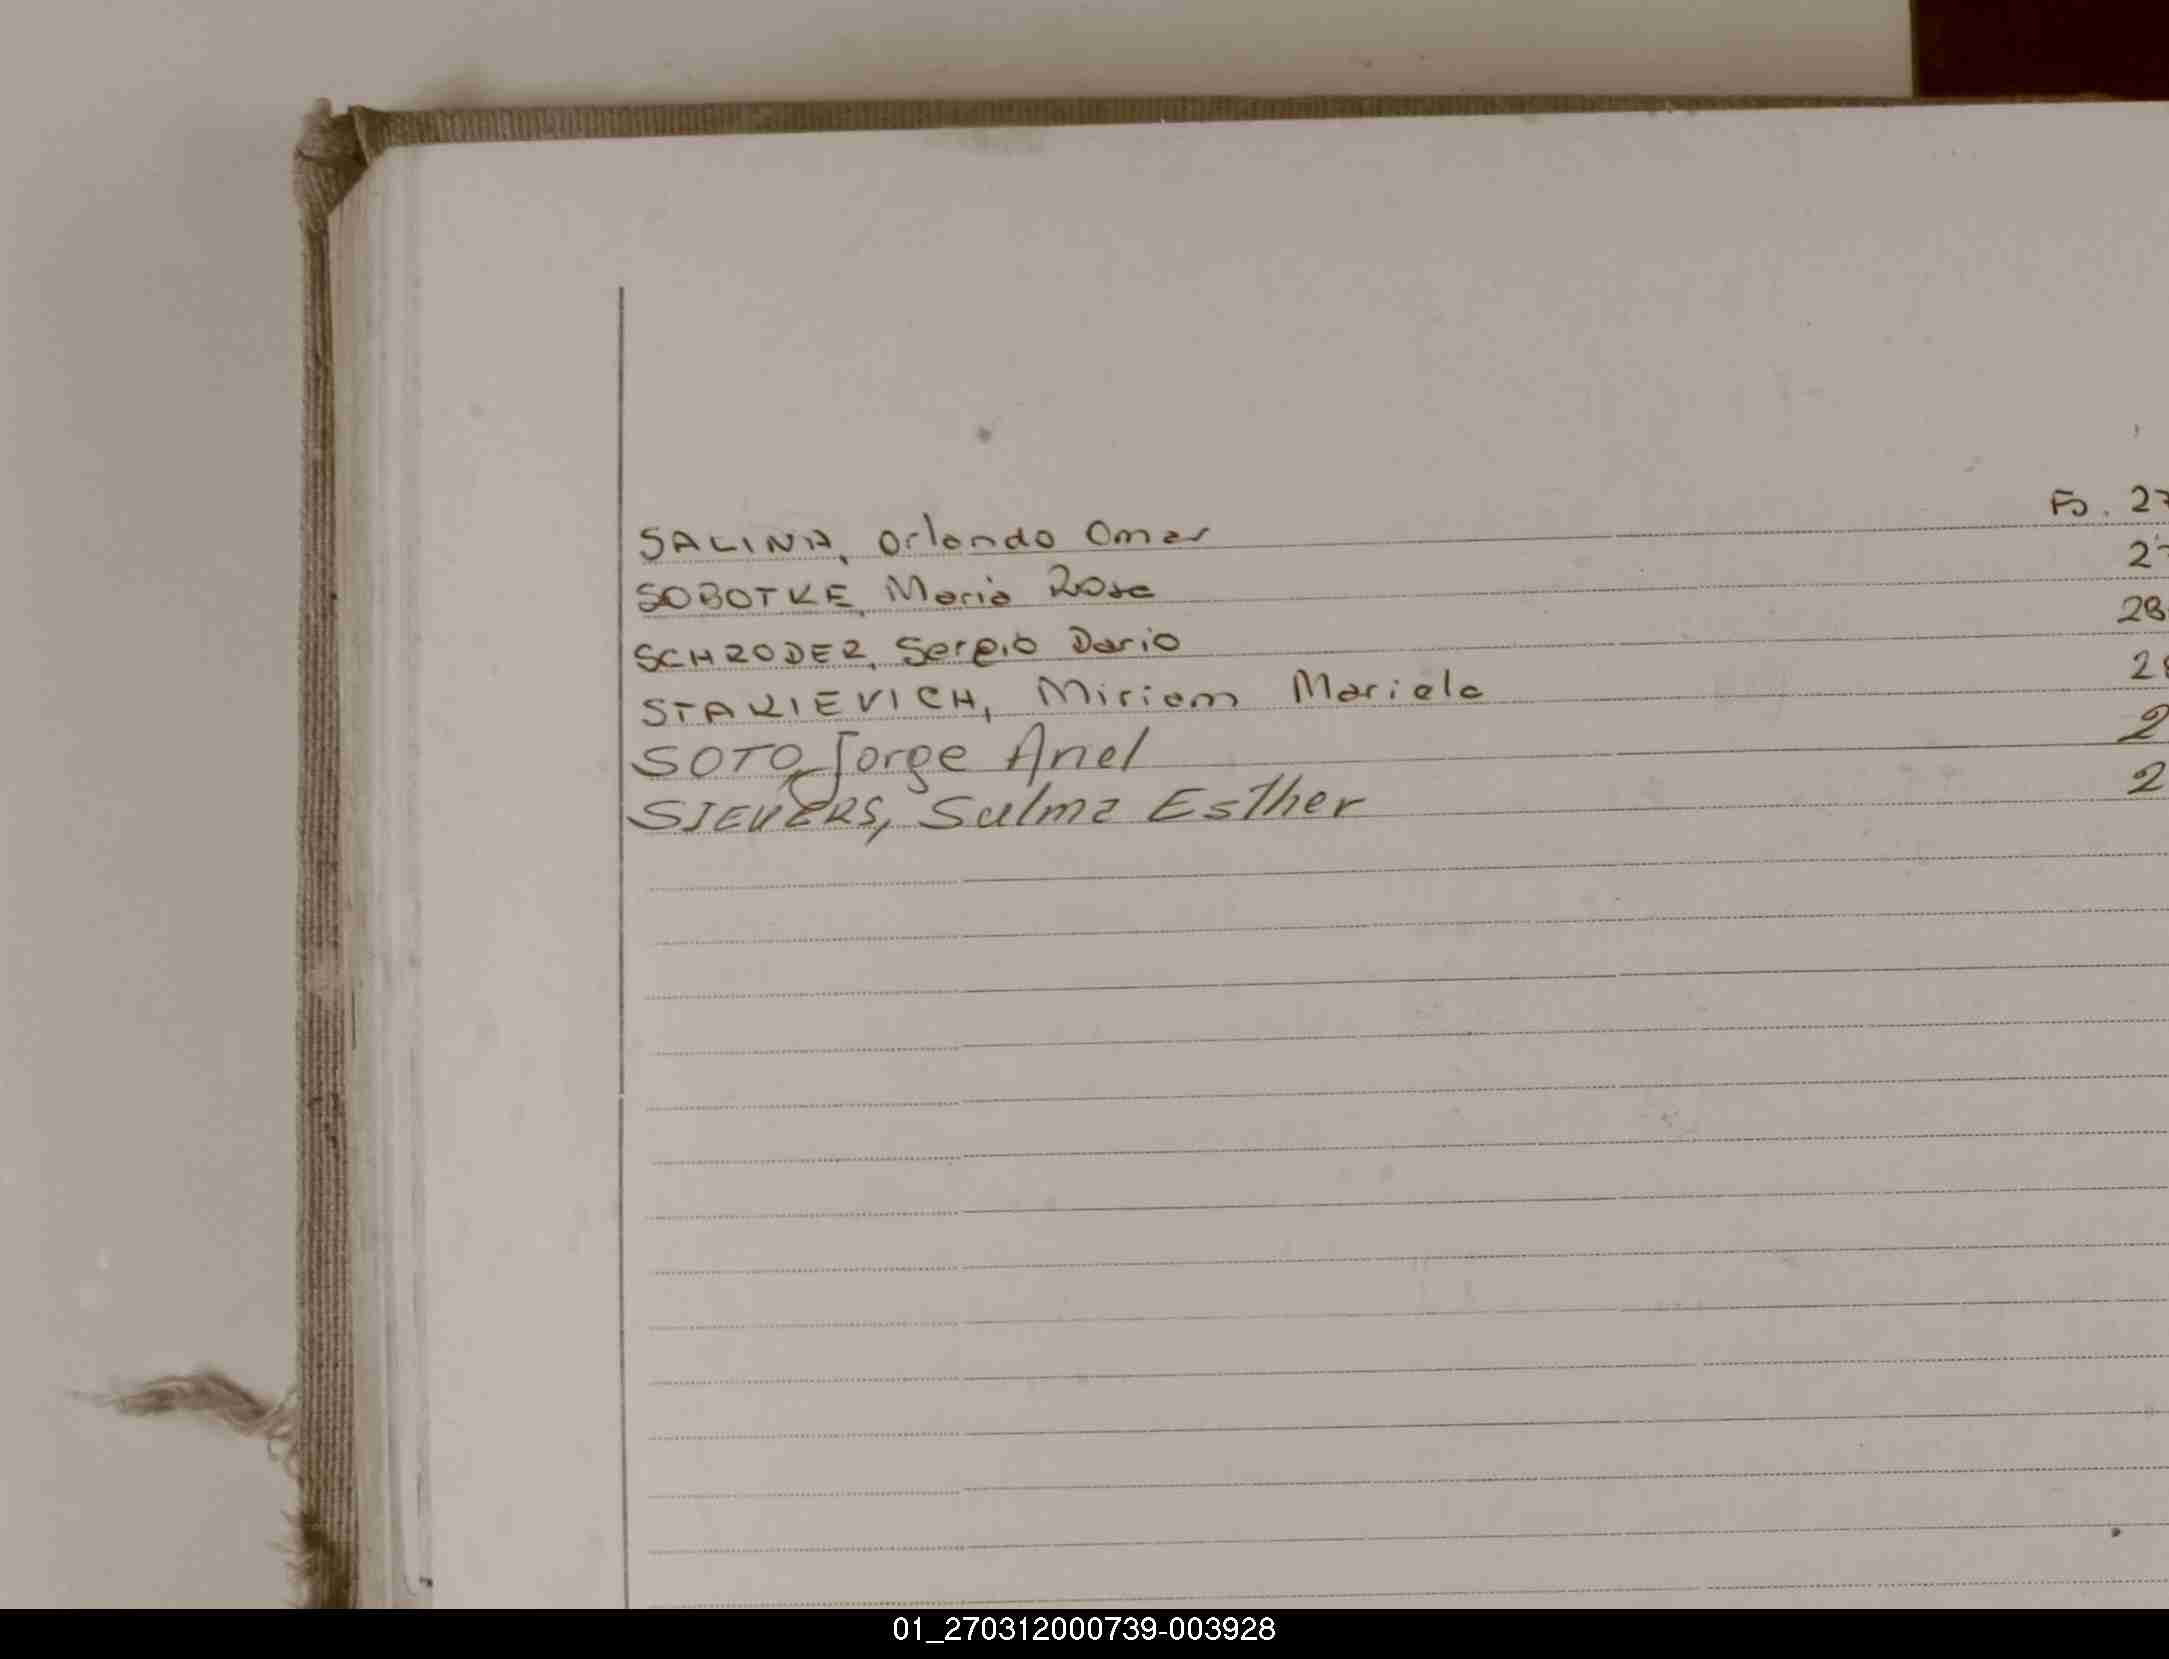 SALINA, Orlando Omar Fo. 27
SOBOTKE, Maria Rosa 27
SCHRODER, Sergio Dario 28
STAKIEVICH, Miriam Mariela 28
SOTO, Jorge Ariel 2
SIEVERS, Sulma Esther 2
01_270312000739-003928